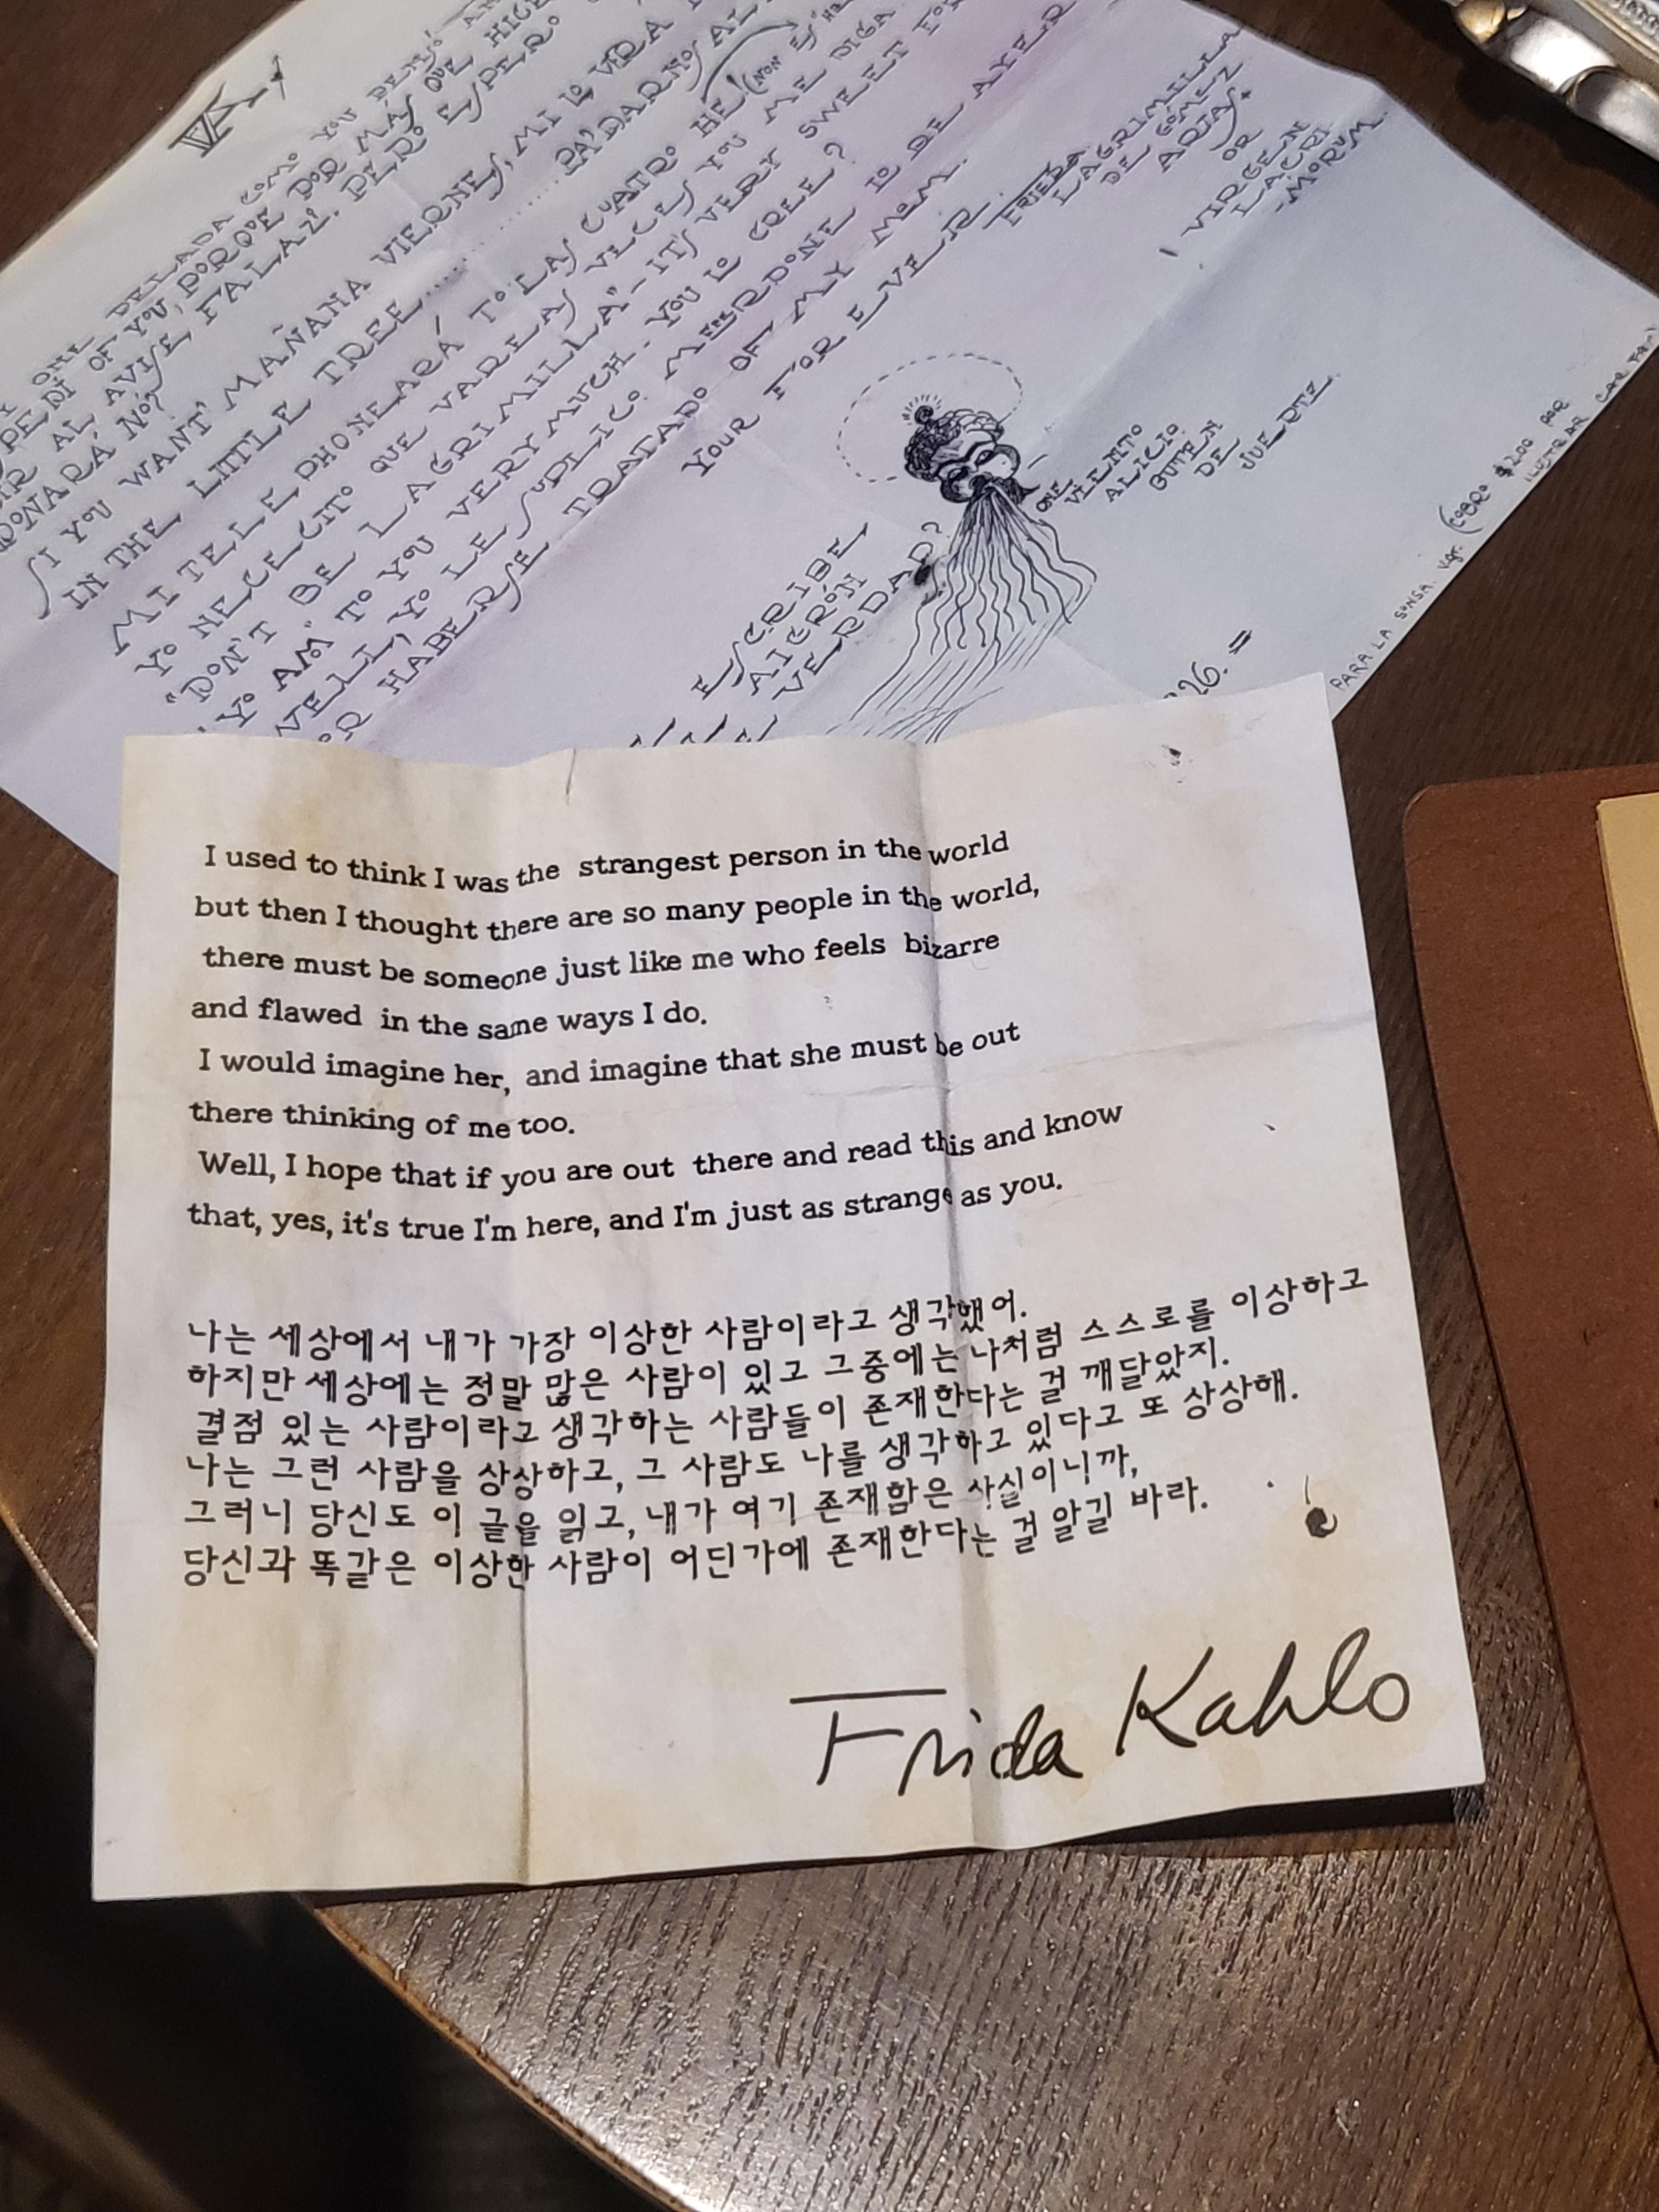 YOU WANT" MAÑANA VIERNES, MI
IN THE LITTLE TREE
MI TELEPHONEARÁ TO LAS CUATRO
YO NECECITO QUE VAREAS VECES YOU ME DIGA
"DON'T BE LAGRIMILLA" - IT'S VERY SWEET FOR
YO AM TO YOU VERY MUCH. YOU LO CREE?
WELL, YO LE SUPLICO MEERDONE LO DE AYER
HABERSE TRATADO OF MY MOM.
YOUR FOR EVER
FRIEDA
LAGRIMILLA
DE GÓMEZ
ARIAS
OR
VIRGEN
LACRI-
-MORUM.
ESCRIBE
VERDAD?
ONE
ALICIO
GUTEN
DE
PARA LA SONSA. vgr. (COBRO $2.00 POR
ILUSTRAR
26. =
I used to think I was the strangest person in the world
but then I thought there are so many people in the world,
there must be someone just like me who feels bizarre
and flawed in the same ways I do.
I would imagine her, and imagine that she must be out
there thinking of me too.
Well, I hope that if you are out there and read this and know
that, yes, it's true I'm here, and I'm just as strange as you.
나는 세상에서 내가 가장 이상한 사람이라고 생각했어.
하지만 세상에는 정말 많은 사람이 있고 그중에는 나처럼 스스로를 이상하고
결점 있는 사람이라고 생각하는 사람들이 존재한다는 걸 깨달았지.
나는 그런 사람을 상상하고, 그 사람도 나를 생각하고 있다고 또 상상해.
그러니 당신도 이 글을 읽고, 내가 여기 존재함은 사실이니까,
당신과 똑같은 이상한 사람이 어딘가에 존재한다는 걸 알길 바라.
Frida Kahlo